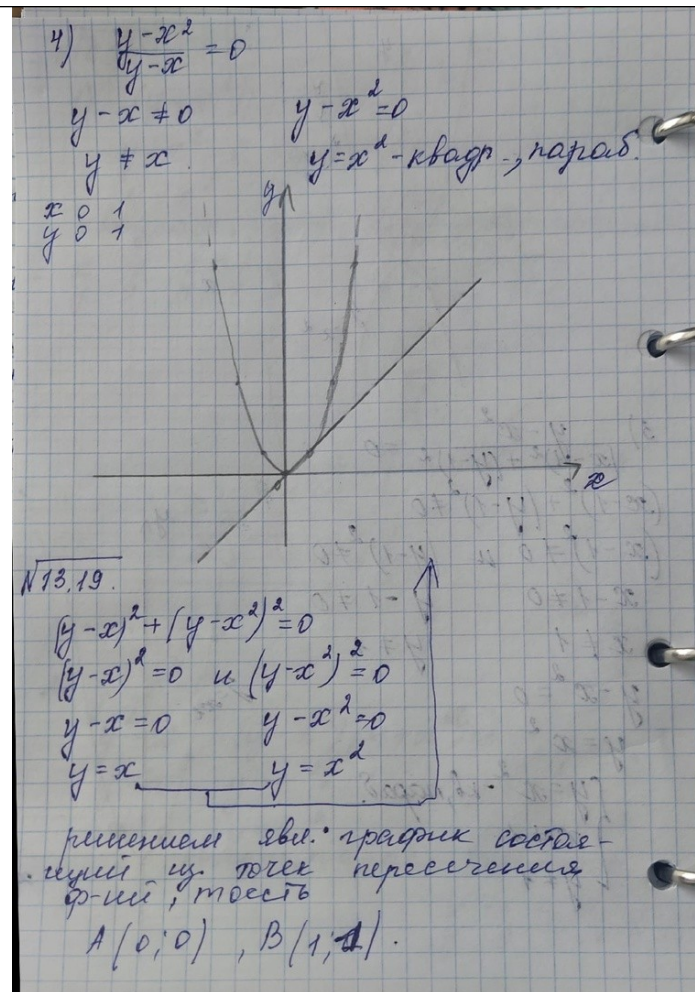 4) (y-x²)/(y-x) = 0
y - x ≠ 0 y - x² = 0
y ≠ x y = x² - квадр., параб.
x 0 1
y 0 1
y
x
№13.19.
(y-x)² + (y-x²)² = 0
(y-x)² = 0 и (y-x²)² = 0
y - x = 0 y - x² = 0
y = x y = x²
решением явл. график состоя-
щий из точек пересечения
ф-ий, тоесть
A (0; 0) , B (1; 1).